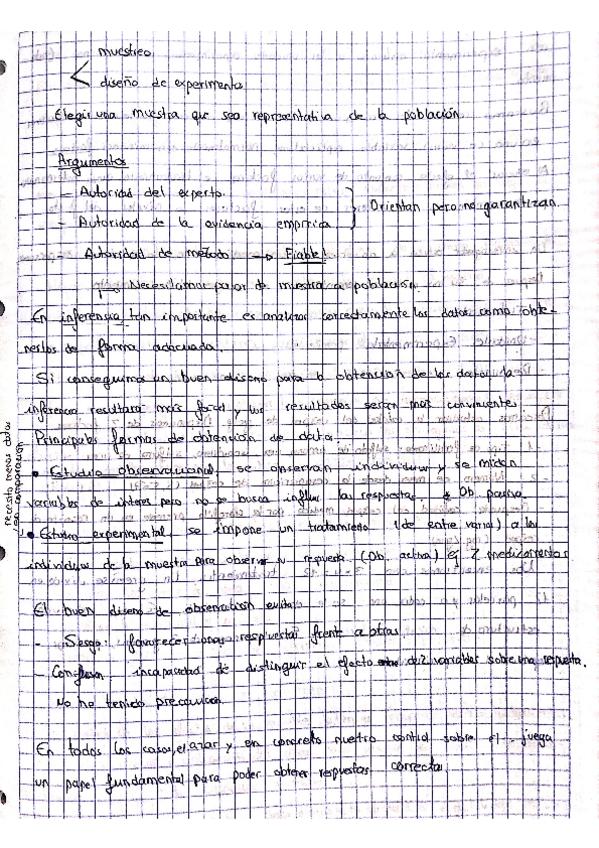 muestreo
diseño de experimento
Elegir una muestra que sea representativa de la población.
Argumentos
- Autoridad del experto.
- Autoridad de la evidencia empírica.
} Orientan pero no garantizan.
- Autoridad de método → Fiable!
Necesitamos pasar de muestra a población
En inferencia tan importante es analizar correctamente los datos como obte-
nerlos de forma adecuada.
Si conseguimos un buen diseño para la obtención de los datos, la
inferencia resultará más fácil y los resultados serán más
Principales formas de obtención de datos:
• Estudio observacional, se observan individuos y se miden
variables de interés pero no se busca influir las respuestas. Ob. pasiva
• Estudio experimental, se impone un tratamiento (de entre varios) a los
individuos de la muestra para observar su respuesta (Ob. activa) ej 2 medicamentos
necesito menos datos
en comparación
El buen diseño de observación evita:
- Sesgo: favorecer unas respuestas frente a otras.
- incapacidad de distinguir el efecto de 2 variables sobre una respuesta.
No he tenido precaución.
En todos los casos, el azar y, en concreto nuestro control sobre él juega
un papel fundamental para poder obtener respuestas correctas.